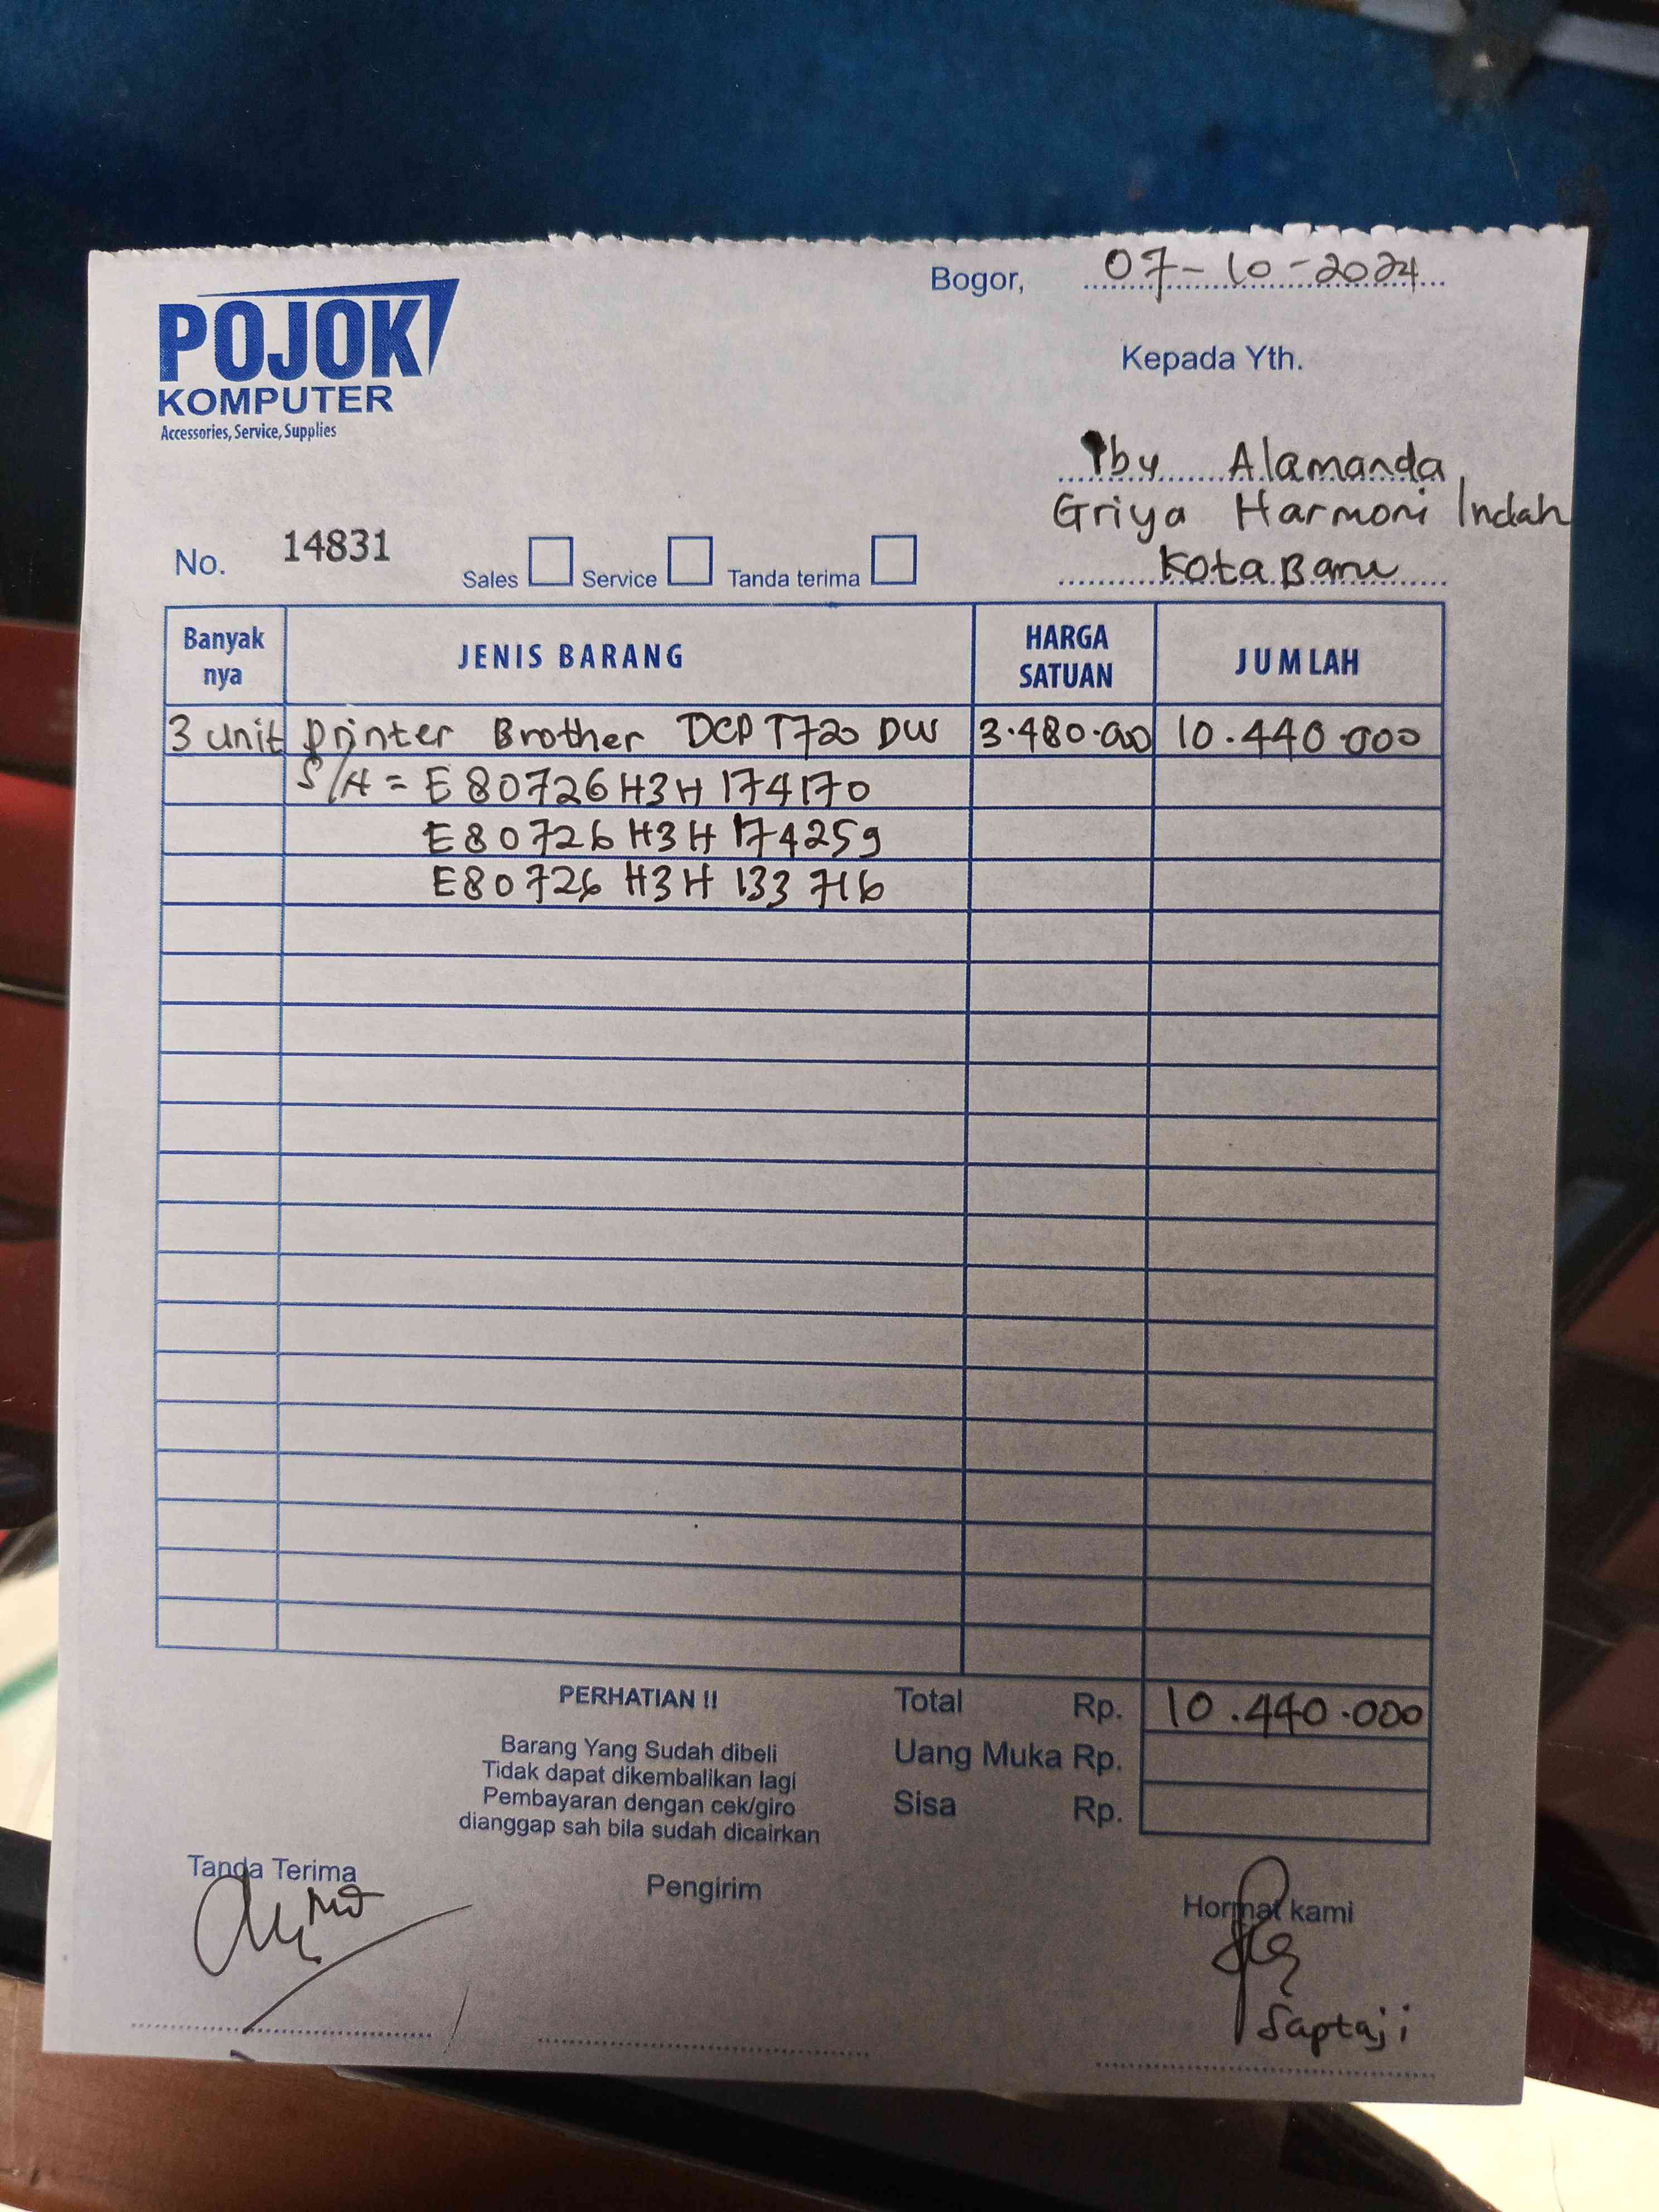 Bogor, 07-10-2024
POJOK
KOMPUTER
Accessories, Service, Supplies
Kepada Yth.
Iby Alamanda
Griya Harmoni Indah
Kota Baru
No. 14831 Sales Service Tanda terima
Banyak nya JENIS BARANG HARGA SATUAN JUMLAH
3 unit Printer Brother DCP T720 DW 3.480.000 10.440.000
S/N = E80726H3H174170
E80726H3H174259
E80726H3H133716
PERHATIAN !!
Barang Yang Sudah dibeli
Tidak dapat dikembalikan lagi
Pembayaran dengan cek/giro
dianggap sah bila sudah dicairkan
Total Rp. 10.440.000
Uang Muka Rp.
Sisa Rp.
Tanda Terima
Pengirim
Hormat kami
Saptaji